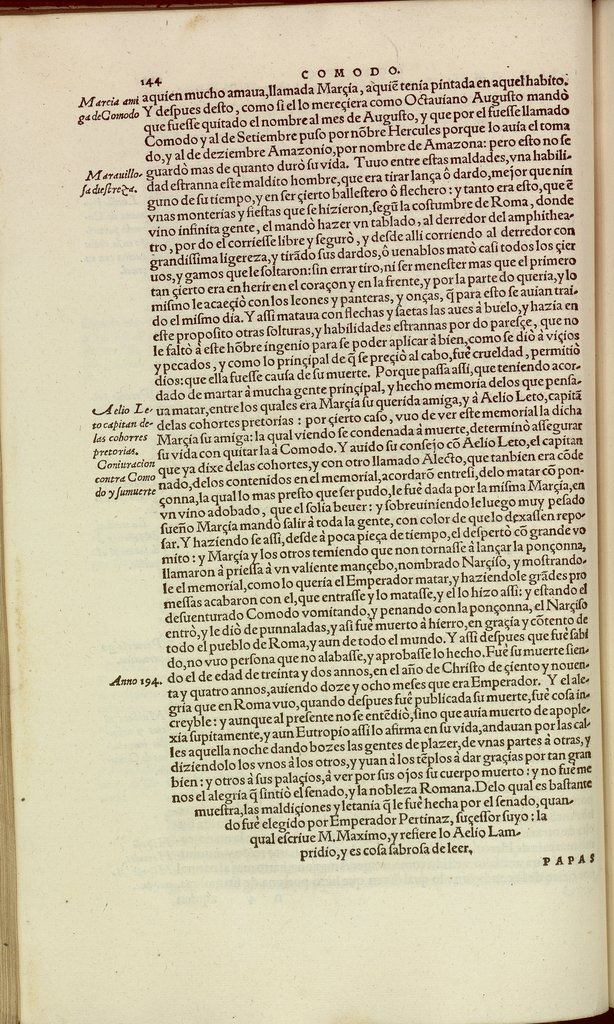 144
COMODO.
Marcia ami
ga de Comodo
aquien mucho amaua, llamada Marçia, a quiē tenía pintada en aquel habito.
Y despues desto, como si el lo mereçiera como Octauiano Augusto mandò
que fuesse quitado el nombre al mes de Augusto, y que por el fuesse llamado
Comodo y al de Setiembre puso por nõbre Hercules porque lo auía el toma
do, y al de deziembre Amazonio, por nombre de Amazona: pero esto no se
Marauillo-
sa dustreza.
guardò mas de quanto durò su vida. Tuuo entre estas maldades, vna habili-
dad estranna este maldito hombre, que era tirar lança ô dardo, mejor que nin
guno de su tiempo, y en ser çierto ballestero ô flechero: y tanto era esto, que ē
vnas monterías y fiestas que se hizieron, segũ la costumbre de Roma, donde
vino infinita gente, el mandò hazer vn tablado, al derredor del amphithea-
tro, por do el corriesse libre y segurò, y desde alli corriendo al derredor con
grandissima ligereza, y tirãdo sus dardos, ô uenablos matò casi todos los çier
uos, y gamos que le soltaron: sin errar tiro, ni ser menester mas que el primero
tan çierto era en herir en el coraçon y en la frente, y por la parte do quería, y lo
mismo le acaeçiò con los leones y panteras, y onças, q̃ para esto se auían trai-
do el mismo día. Y assi mataua con flechas y saetas las aues à buelo, y hazía en
este proposito otras solturas, y habilidades estrannas por do paresçe, que no
le faltò à este hõbre ingenio para se poder aplicar à bien, como se diò à viçios
y pecados, y como lo prinçipal de q̃ se preçiò al cabo, fuè crueldad, permitiò
dios: que ella fuesse causa de su muerte. Porque passa assi, que teniendo acor-
dado de martar à mucha gente prinçipal, y hecho memoría delos que pensa-
Aelio Le-
to capitan de
las cohorres
pretorias.
Coniuracion
contra Como
do y su muerte
ua matar, entre los quales era Marçia su querida amiga, y à Aelio Leto, capitã
delas cohortes pretorías: por çierto caso, vuo de ver este memorial la dicha
Marçia su amiga: la qual viendo se condenada à muerte, determinò assegurar
su vida con quitar la à Comodo. Y auído su consejo cõ Aelio Leto, el capitan
que ya dixe delas cohortes, y con otro llamado Alecto, que tanbien era cõde
nado, delos contenidos en el memorial, acordarõ entresi, delo matar cõ pon-
çonna, la qual lo mas presto que ser pudo, le fuè dada por la misma Marçia, en
vn vino adobado, que el solía beuer: y sobreuiniendo le luego muy pesado
sueño Marçia mandò salir à toda la gente, con color de que lo dexassen repo-
sar. Y haziendo se assi, desde à poca pieça de tiempo, el despertò cõ grande vo
mito: y Marçia y los otros temiendo que non tornasse à lançar la ponçonna,
llamaron à priessa à vn valiente mançebo, nombrado Narçiso, y mostrando-
le el memorial, como lo quería el Emperador matar, y haziendole grãdes pro
messas acabaron con el, que entrasse y lo matasse, y el lo hizo assi: y estando el
desuenturado Comodo vomitando, y penando con la ponçonna, el Narçiso
entrò, y le diò de punnaladas, y asi fuè muerto à hierro, en graçia y cõtento de
todo el pueblo de Roma, y aun de todo el mundo. Y assi despues que fuè sabi
do, no vuo persona que no alabasse, y aprobasse lo hecho. Fuè su muerte sien-
Anno 194.
do el de edad de treinta y dos annos, en el año de Christo de çiento y nouen-
ta y quatro annos, auiendo doze y ocho meses que era Emperador. Y el ale-
gría que en Roma vuo, quando despues fuè publicada su muerte, fuè cosa in-
creyble: y aunque al presente no se entēdiò, sino que auía muerto de apople-
xia supitamente, y aun Eutropio assi lo afirma en su vida, andauan por las cal-
les aquella noche dando bozes las gentes de plazer, de vnas partes à otras, y
diziendolo los vnos à los otros, y yuan à los tēplos à dar graçias por tan gran
bien: y otros à sus palaçios, à ver por sus ojos su cuerpo muerto: y no fuè me
nos el alegría q̃ sintiò el senado, y la nobleza Romana. Delo qual es bastante
muestra, las maldiçiones y letanía q̃ le fuè hecha por el senado, quan-
do fuè elegido por Emperador Pertinaz, suçessor suyo: la
qual escriue M. Maximo, y refiere lo Aelio Lam-
pridio, y es cosa sabrosa de leer,
PAPAS